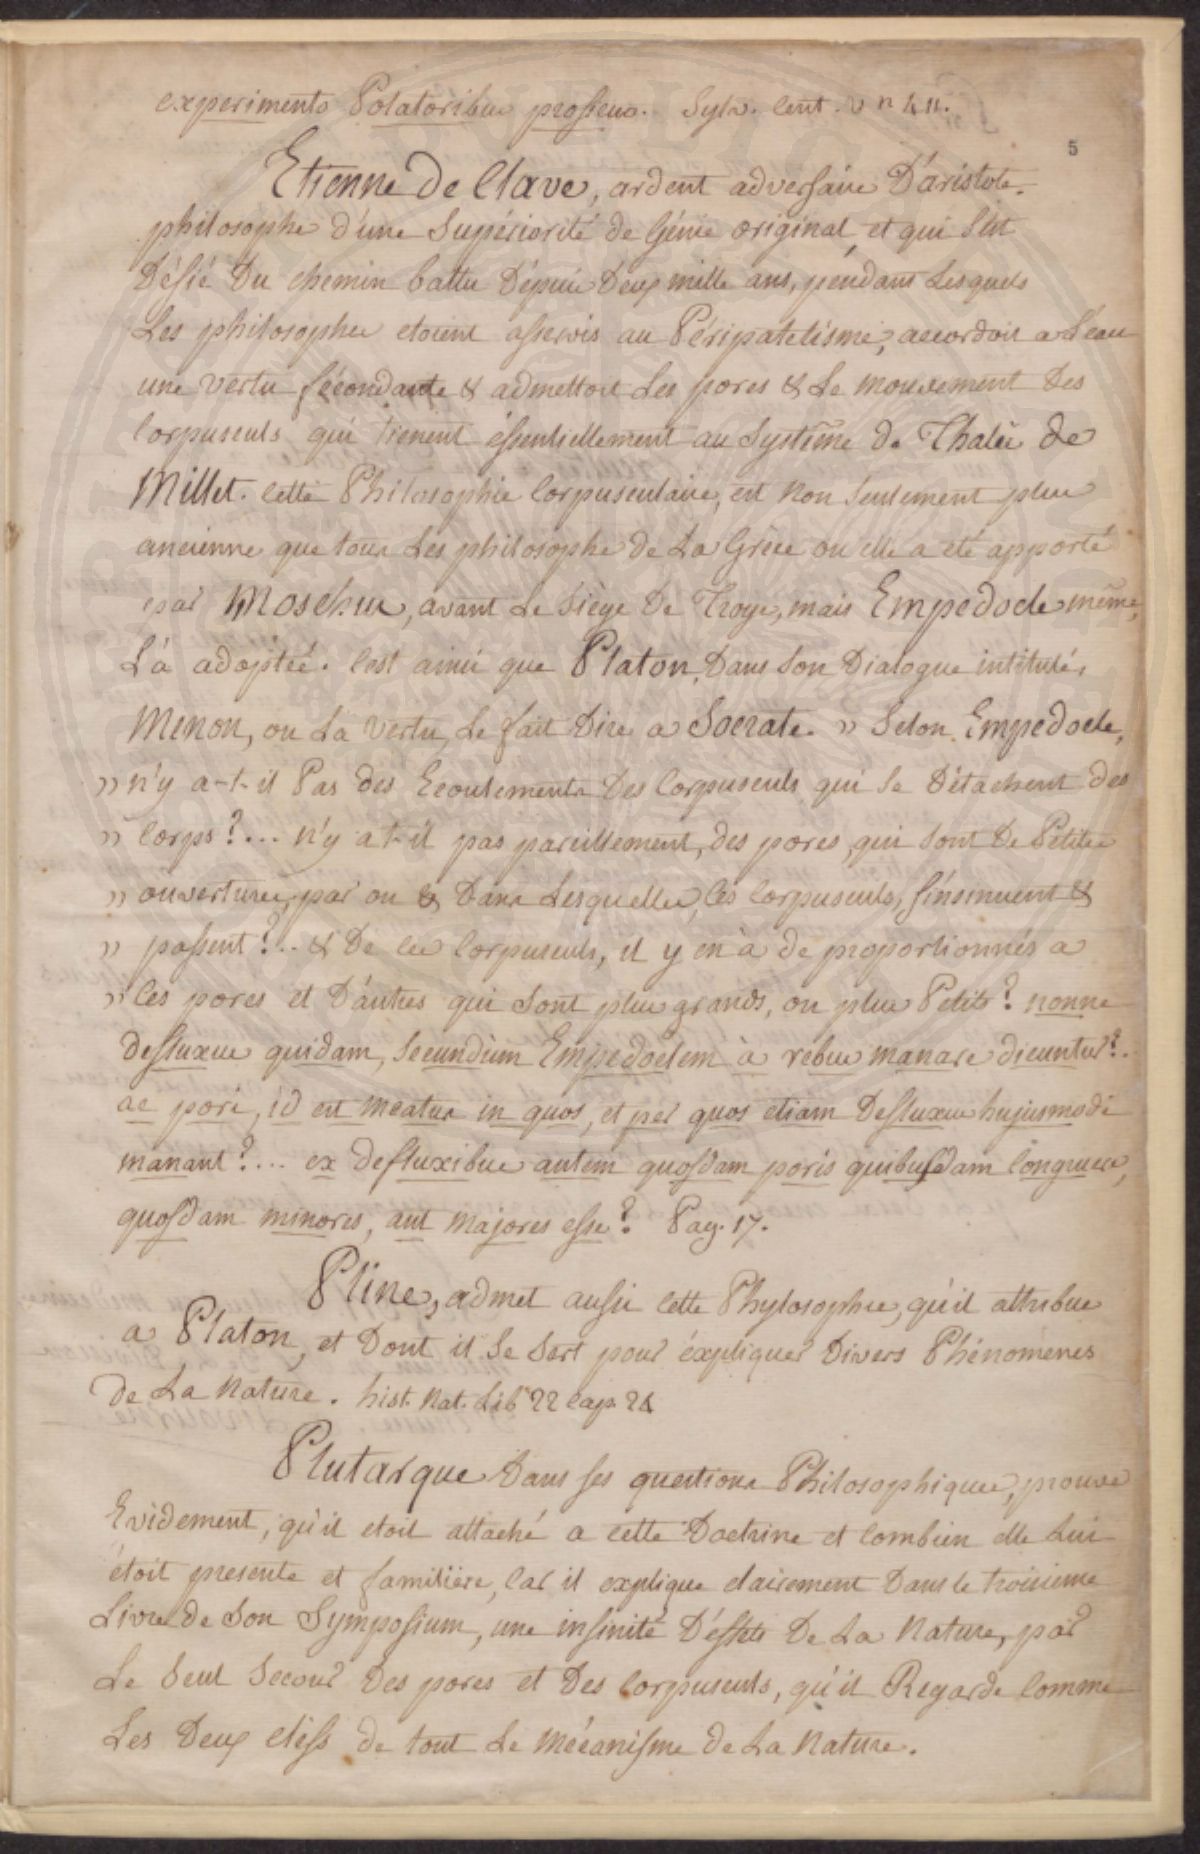 experimento Potatoribus prossens. Sylv. Cent. V n 411.
5
Etienne De Clave, ardent adversaire D'aristote.
philosophe d'une Supériorité de Génie original, et qui s'est
Défié Du chemin battu Dépuis Deux mille ans, péndant Lesquels
Les philosophes etoient asservis au Péripatetisme, accordoit a L'eau
une Vertu fécondante & admettoit Les pores & Le mouvement Des
Corpuscules qui tienent éssentiellement au Systême de Thalès de
Millet. Cette Philosophie Corpusculaire, est non Seulement plus
ancienne que tous Les philosophe de La Grèce ou elle a été apporté
par Moschus, avant Le Siège De Troye, mais Empedocle même,
L'a adoptée. C'est ainsi que Platon, Dans son Dialogue intitulé,
Menon, ou La Vertu, Le fait Dire a Socrate. » Selon Empedocle,
» n'y a-t-il Pas des Ecoulements Des Corpuscules qui Se Détachent des
» Corps?... n'y a t-il pas pareillement, des pores, qui sont De Petites
» ouvertures, par ou & Dans Lesquelles, Ces Corpuscules, s'insinuent &
» passent?.. & De Ces Corpuscules, il y en à de proportionnés a
» Ces pores et D'autres qui Sont plus grands, ou plus Petits? nonne
defluxus quidam, Secundùm Empedoclem à rebus manare dicuntur?.
ac pori, id est meatus in quos, et per quos etiam Defluxus hujusmodi
manant?... ex defluxibus autem quosdam poris quibusdam Congruere,
quosdam minores, aut majores esse? Pag. 17.
Pline, admet aussi Cette Phylosophie, qu'il attribue
a Platon, et Dont il Se Sert pour éxpliquer Divers Phénomènes
de La Nature. hist. Nat. Lib 22 Cap. 24
Plutarque Dans ses questions Philosophiques, prouve
Evidement, qu'il etoit attaché a cette Doctrine et Combien elle Lui
étoit presente et familière, Car il explique clairement Dans le troisieme
Livre de Son Symposium, une infinité D'éffets De La Nature, par
Le Seul Secour Des pores et Des Corpuscules, qu'il Regarde Comme
Les Deux clefs de tout Le Mécanisme de La Nature.